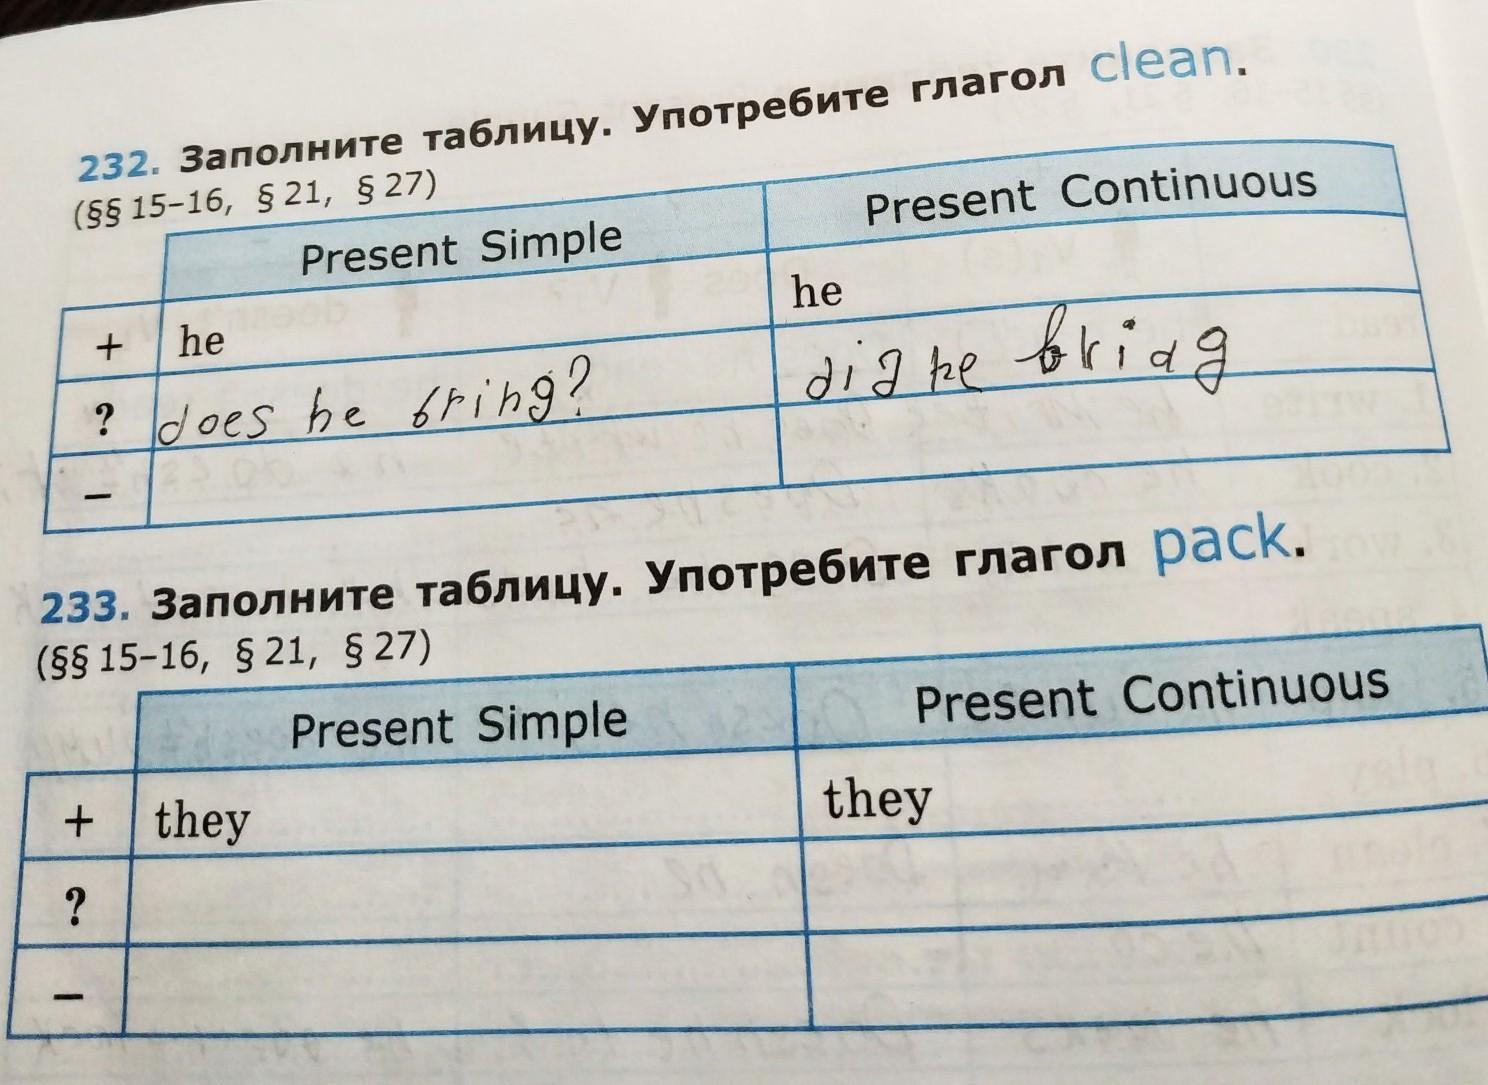 232. Заполните таблицу. Употребите глагол clean.
(§§ 15–16, § 21, § 27)
Present Simple Present Continuous
+ he he
? does he bring? did he bring
–
233. Заполните таблицу. Употребите глагол pack.
(§§ 15–16, § 21, § 27)
Present Simple Present Continuous
+ they they
?
–